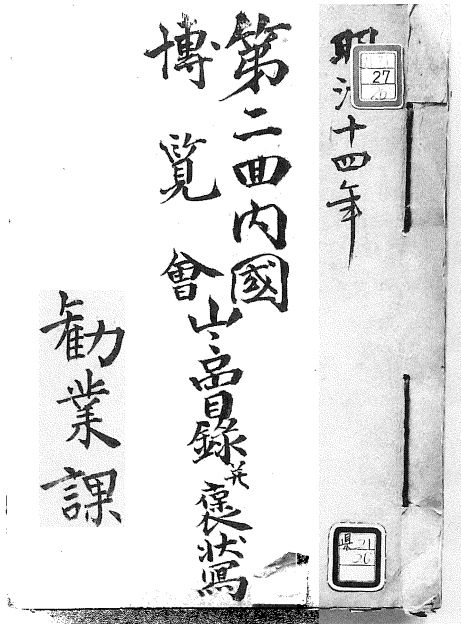 明治十四年
27
26
第二回内國
博覧會
出品目錄并褒状寫
勸業課
県21
26